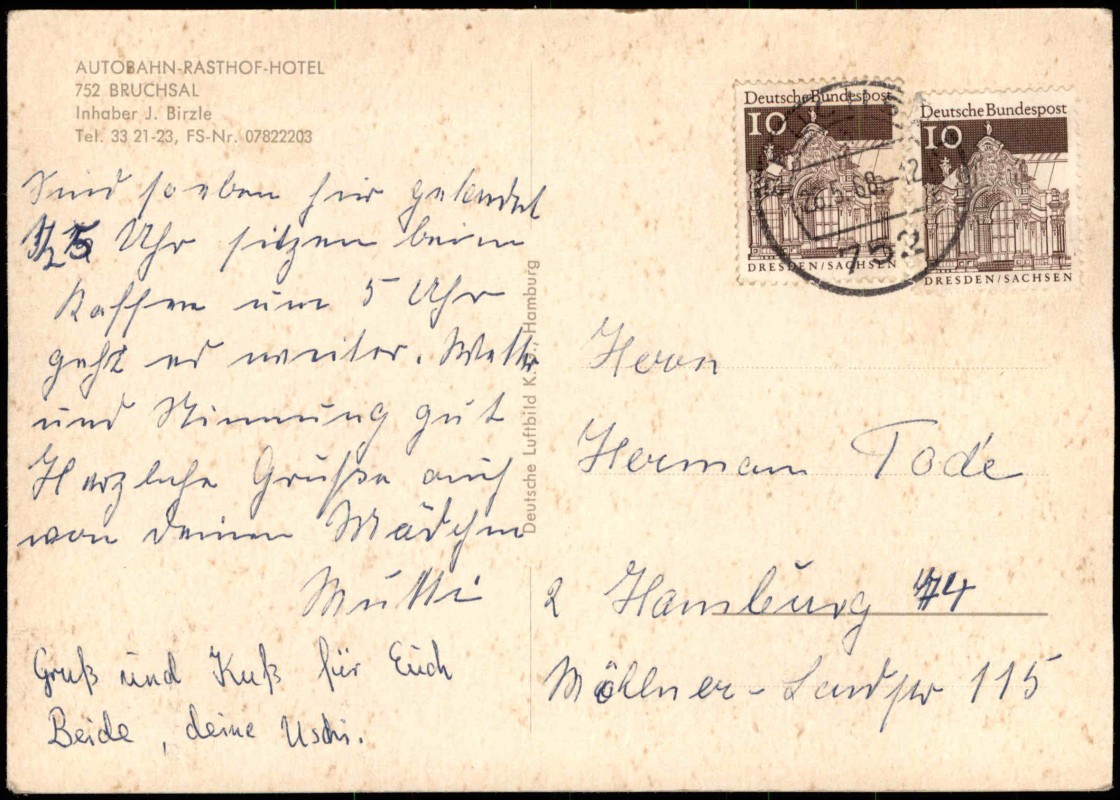 AUTOBAHN-RASTHOF-HOTEL
752 BRUCHSAL
Inhaber J. Birzle
Tel. 33 21-23, FS-Nr. 07822203
Sind soeben hier gelandet
1/2 5 Uhr sitzen beim
Kaffee um 5 Uhr
geht es weiter. Wetter
und Stimmung gut
Herzliche Grüße auch
von deinen Mädchen
Mutti
Gruß und Kuß für Euch
Beide, deine Uschi.
Deutsche Luftbild K.G., Hamburg
Deutsche Bundespost
10
DRESDEN/SACHSEN
Deutsche Bundespost
10
DRESDEN/SACHSEN
26.5.68
752
Herrn
Herman Tode
2 Hamburg 74
Möllner-Landstr 115